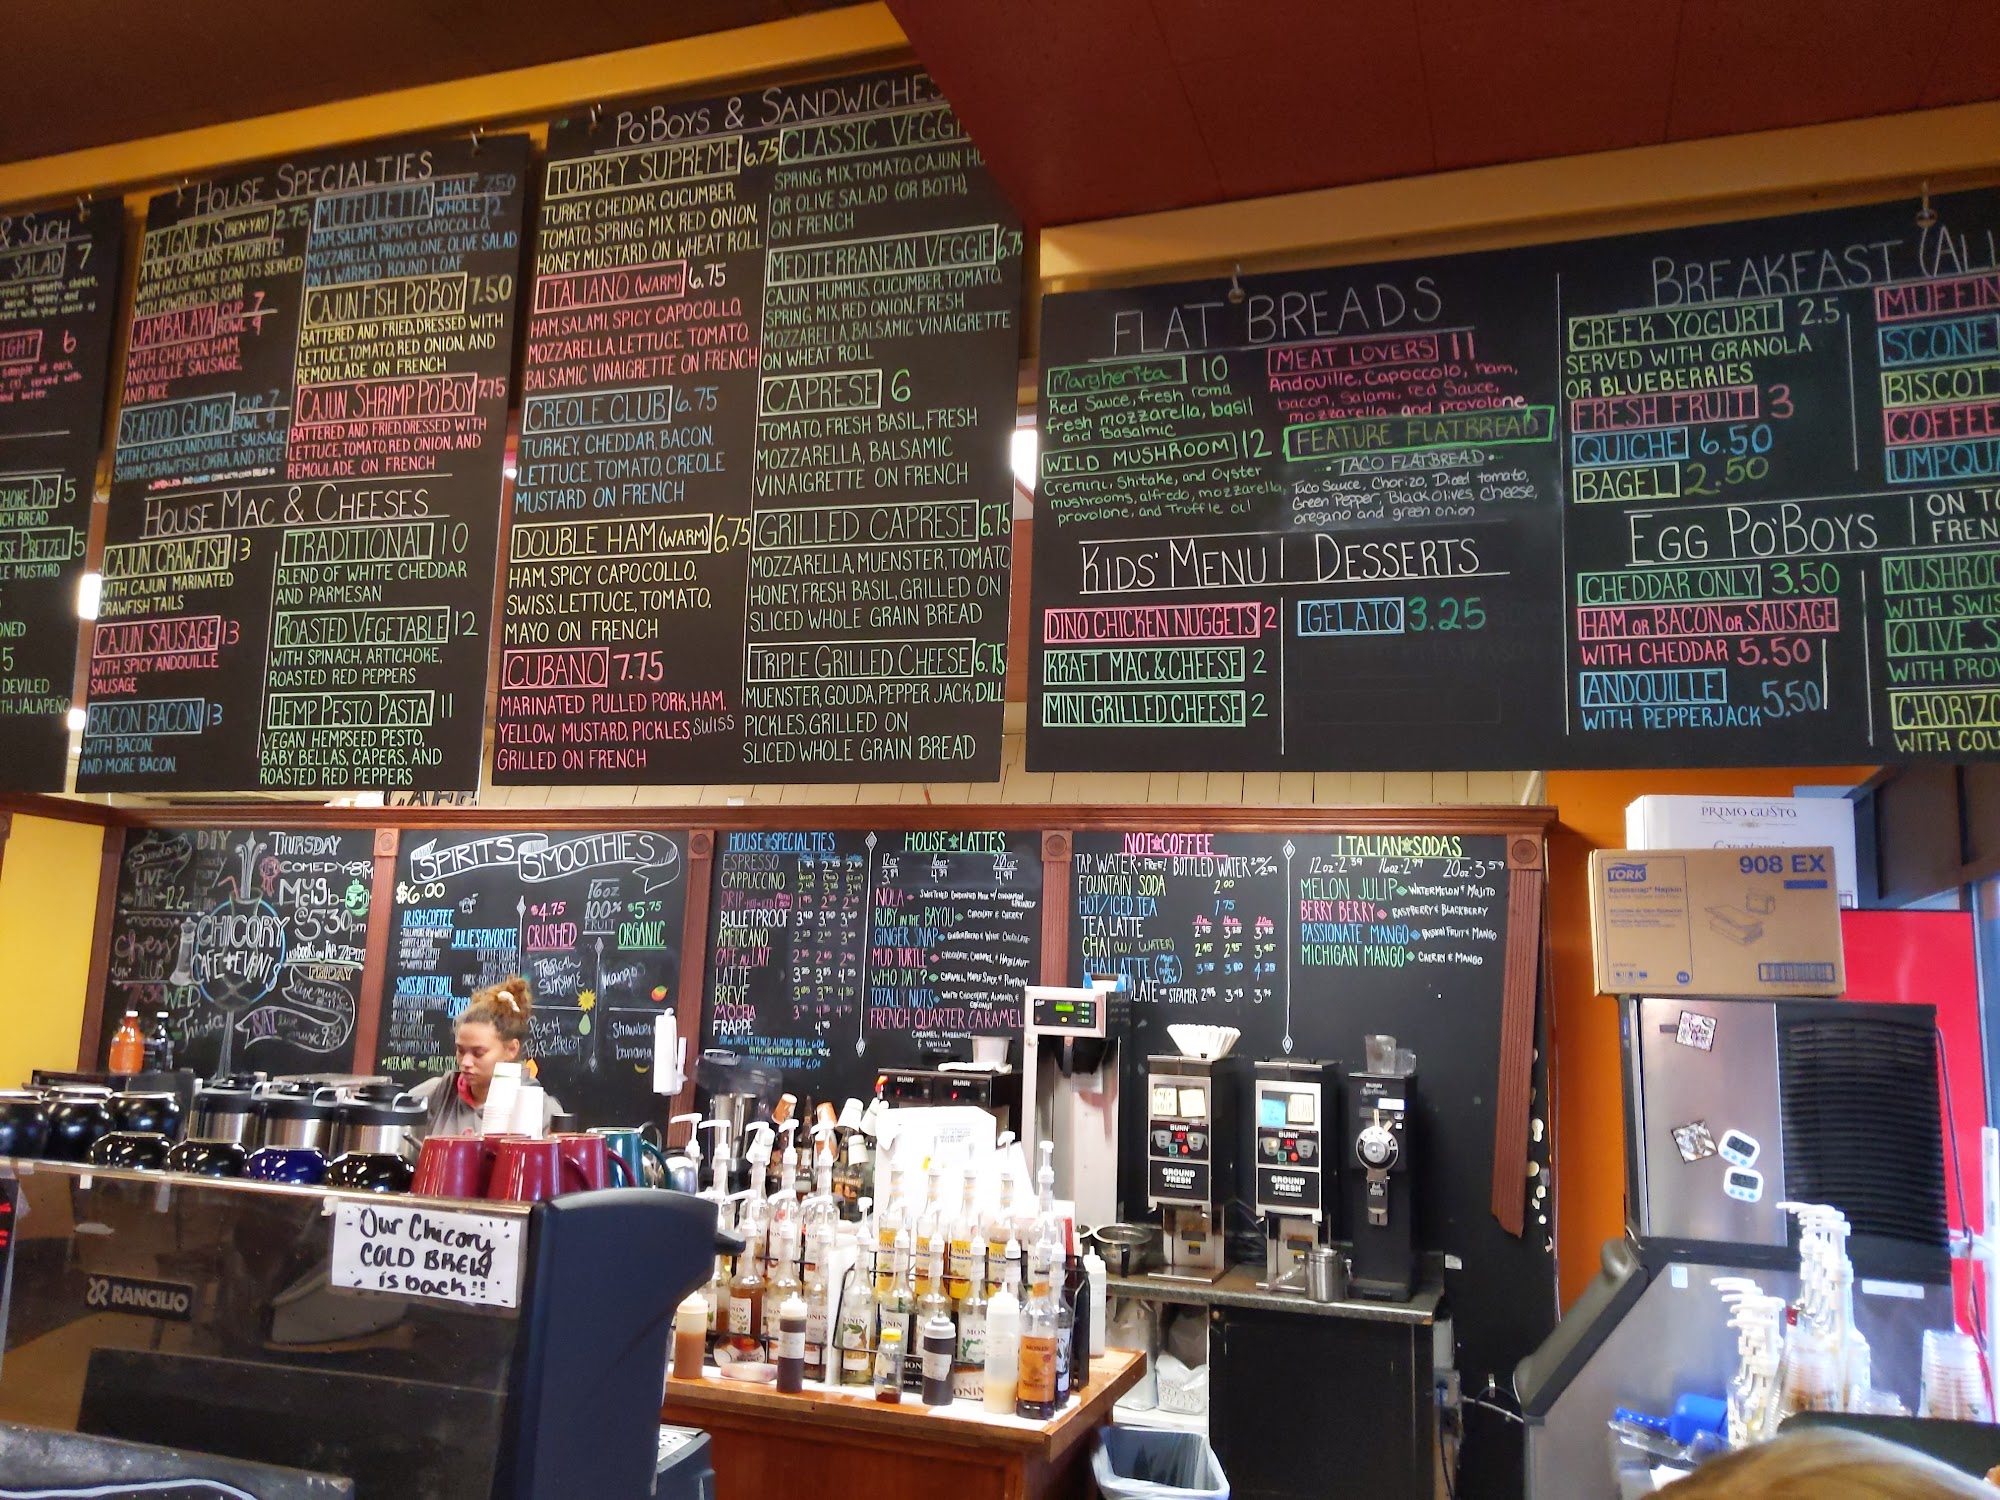 & SUCH
SALAD 7
6
CHOKE DIP 5
PRETZEL 5
LE MUSTARD
5
DEVILED
TH JALAPEÑO
HOUSE SPECIALTIES
BEIGNETS (BEN-YAY) 2.75
A NEW ORLEANS FAVORITE!
WARM HOUSE-MADE DONUTS SERVED
WITH POWDERED SUGAR
JAMBALAYA CUP 7
BOWL 9
WITH CHICKEN, HAM,
ANDOUILLE SAUSAGE,
AND RICE
SEAFOOD GUMBO CUP 7
BOWL 9
WITH CHICKEN, ANDOUILLE SAUSAGE
SHRIMP, CRAWFISH, OKRA, AND RICE
MUFFULETTA HALF 7.50
WHOLE 12
HAM, SALAMI, SPICY CAPOCOLLO,
MOZZARELLA, PROVOLONE, OLIVE SALAD
ON A WARMED ROUND LOAF
CAJUN FISH PO'BOY 7.50
BATTERED AND FRIED, DRESSED WITH
LETTUCE, TOMATO, RED ONION, AND
REMOULADE ON FRENCH
CAJUN SHRIMP PO'BOY 7.75
BATTERED AND FRIED, DRESSED WITH
LETTUCE, TOMATO, RED ONION, AND
REMOULADE ON FRENCH
HOUSE MAC & CHEESES
CAJUN CRAWFISH 13
WITH CAJUN MARINATED
CRAWFISH TAILS
CAJUN SAUSAGE 13
WITH SPICY ANDOUILLE
SAUSAGE
BACON BACON 13
WITH BACON.
AND MORE BACON.
TRADITIONAL 10
BLEND OF WHITE CHEDDAR
AND PARMESAN
ROASTED VEGETABLE 12
WITH SPINACH, ARTICHOKE,
ROASTED RED PEPPERS
HEMP PESTO PASTA 11
VEGAN HEMPSEED PESTO,
BABY BELLAS, CAPERS, AND
ROASTED RED PEPPERS
PO'BOYS & SANDWICHES
TURKEY SUPREME 6.75
TURKEY, CHEDDAR, CUCUMBER,
TOMATO, SPRING MIX, RED ONION,
HONEY MUSTARD ON WHEAT ROLL
ITALIANO (WARM) 6.75
HAM, SALAMI, SPICY CAPOCOLLO,
MOZZARELLA, LETTUCE, TOMATO,
BALSAMIC VINAIGRETTE ON FRENCH
CREOLE CLUB 6.75
TURKEY, CHEDDAR, BACON,
LETTUCE, TOMATO, CREOLE
MUSTARD ON FRENCH
DOUBLE HAM (WARM) 6.75
HAM, SPICY CAPOCOLLO,
SWISS, LETTUCE, TOMATO,
MAYO ON FRENCH
CUBANO 7.75
MARINATED PULLED PORK, HAM,
YELLOW MUSTARD, PICKLES, SWISS
GRILLED ON FRENCH
CLASSIC VEGGI
SPRING MIX, TOMATO, CAJUN HU
OR OLIVE SALAD (OR BOTH),
ON FRENCH
MEDITERRANEAN VEGGIE 6.75
CAJUN HUMMUS, CUCUMBER, TOMATO,
SPRING MIX, RED ONION, FRESH
MOZZARELLA, BALSAMIC VINAIGRETTE
ON WHEAT ROLL
CAPRESE 6
TOMATO, FRESH BASIL, FRESH
MOZZARELLA, BALSAMIC
VINAIGRETTE ON FRENCH
GRILLED CAPRESE 6.75
MOZZARELLA, MUENSTER, TOMATO
HONEY, FRESH BASIL, GRILLED ON
SLICED WHOLE GRAIN BREAD
TRIPLE GRILLED CHEESE 6.75
MUENSTER, GOUDA, PEPPER JACK, DILL
PICKLES, GRILLED ON
SLICED WHOLE GRAIN BREAD
FLAT BREADS
Margherita 10
Red Sauce, fresh roma
fresh mozzarella, basil
and Basalmic
WILD MUSHROOM 12
Cremini, Shitake, and Oyster
mushrooms, alfredo, mozzarella,
provolone, and Truffle oil
MEAT LOVERS 11
Andouille, Capoccolo, ham,
bacon, Salami, red Sauce,
mozzarella and provolone
FEATURE FLATBREAD
TACO FLATBREAD
Taco Sauce, Chorizo, Diced tomato,
Green Pepper, Black olives, cheese,
oregano and green onion
KIDS' MENU
DINO CHICKEN NUGGETS 2
KRAFT MAC & CHEESE 2
MINI GRILLED CHEESE 2
DESSERTS
GELATO 3.25
BREAKFAST (ALL
GREEK YOGURT 2.5
SERVED WITH GRANOLA
OR BLUEBERRIES
FRESH FRUIT 3
QUICHE 6.50
BAGEL 2.50
MUFFIN
SCONE
BISCOTT
COFFEE
UMPQUA
EGG PO'BOYS ON TO
FREN
CHEDDAR ONLY 3.50
HAM OR BACON OR SAUSAGE
WITH CHEDDAR 5.50
ANDOUILLE
WITH PEPPERJACK 5.50
MUSHROO
WITH SWIS
OLIVE S
WITH PROV
CHORIZO
WITH COL
CAFE
Sunday
LIVE
MUSIC
monday
chess
CLUB
7:30 WED.
Trivia
DIY
CHICORY
CAFE + EVENTS
THURSDAY
COMEDY 8PM
Mug
Club
@5:30pm
FRIDAY
live music
SAT. live
music
SPIRITS SMOOTHIES
$6.00
IRISH COFFEE
JULIE'S FAVORITE
SWISS BUTTERBALL
$4.75
CRUSHED
16oz
100%
FRUIT
$5.75
ORGANIC
mango
PEACH
PEAR APRICOT
strawberry
banana
HOUSE SPECIALTIES
ESPRESSO
CAPPUCCINO
DRIP
BULLETPROOF
AMERICANO
CAFE AU LAIT
LATTE
BREVE
MOCHA
FRAPPE
HOUSE LATTES
12oz 16oz 20oz
NOLA
RUBY IN THE BAYOU CHOCOLATE & CHERRY
GINGER SNAP GINGERBREAD & WHITE CHOCOLATE
MUD TURTLE CHOCOLATE, CARAMEL, & HAZELNUT
WHO DAT?
TOTALLY NUTS
FRENCH QUARTER CARAMEL
CARAMEL, HAZELNUT,
& VANILLA
NOT COFFEE
TAP WATER FREE! BOTTLED WATER
FOUNTAIN SODA 2.00
HOT/ICED TEA 1.75
TEA LATTE
CHAI (W/ WATER)
CHAI LATTE
LATE OR STEAMER
ITALIAN SODAS
12oz 2.39 16oz 2.99 20oz 3.59
MELON JULIP WATERMELON & MOJITO
BERRY BERRY RASPBERRY & BLACKBERRY
PASSIONATE MANGO PASSION FRUIT & MANGO
MICHIGAN MANGO CHERRY & MANGO
PRIMO GUSTO
TORK
908 EX
Our Chicory
COLD BREW
is back!!
RANCILIO
BUNN
BUNN
BUNN
GROUND
FRESH
BUNN
GROUND
FRESH
BUNN
MONIN
MONIN
MONIN